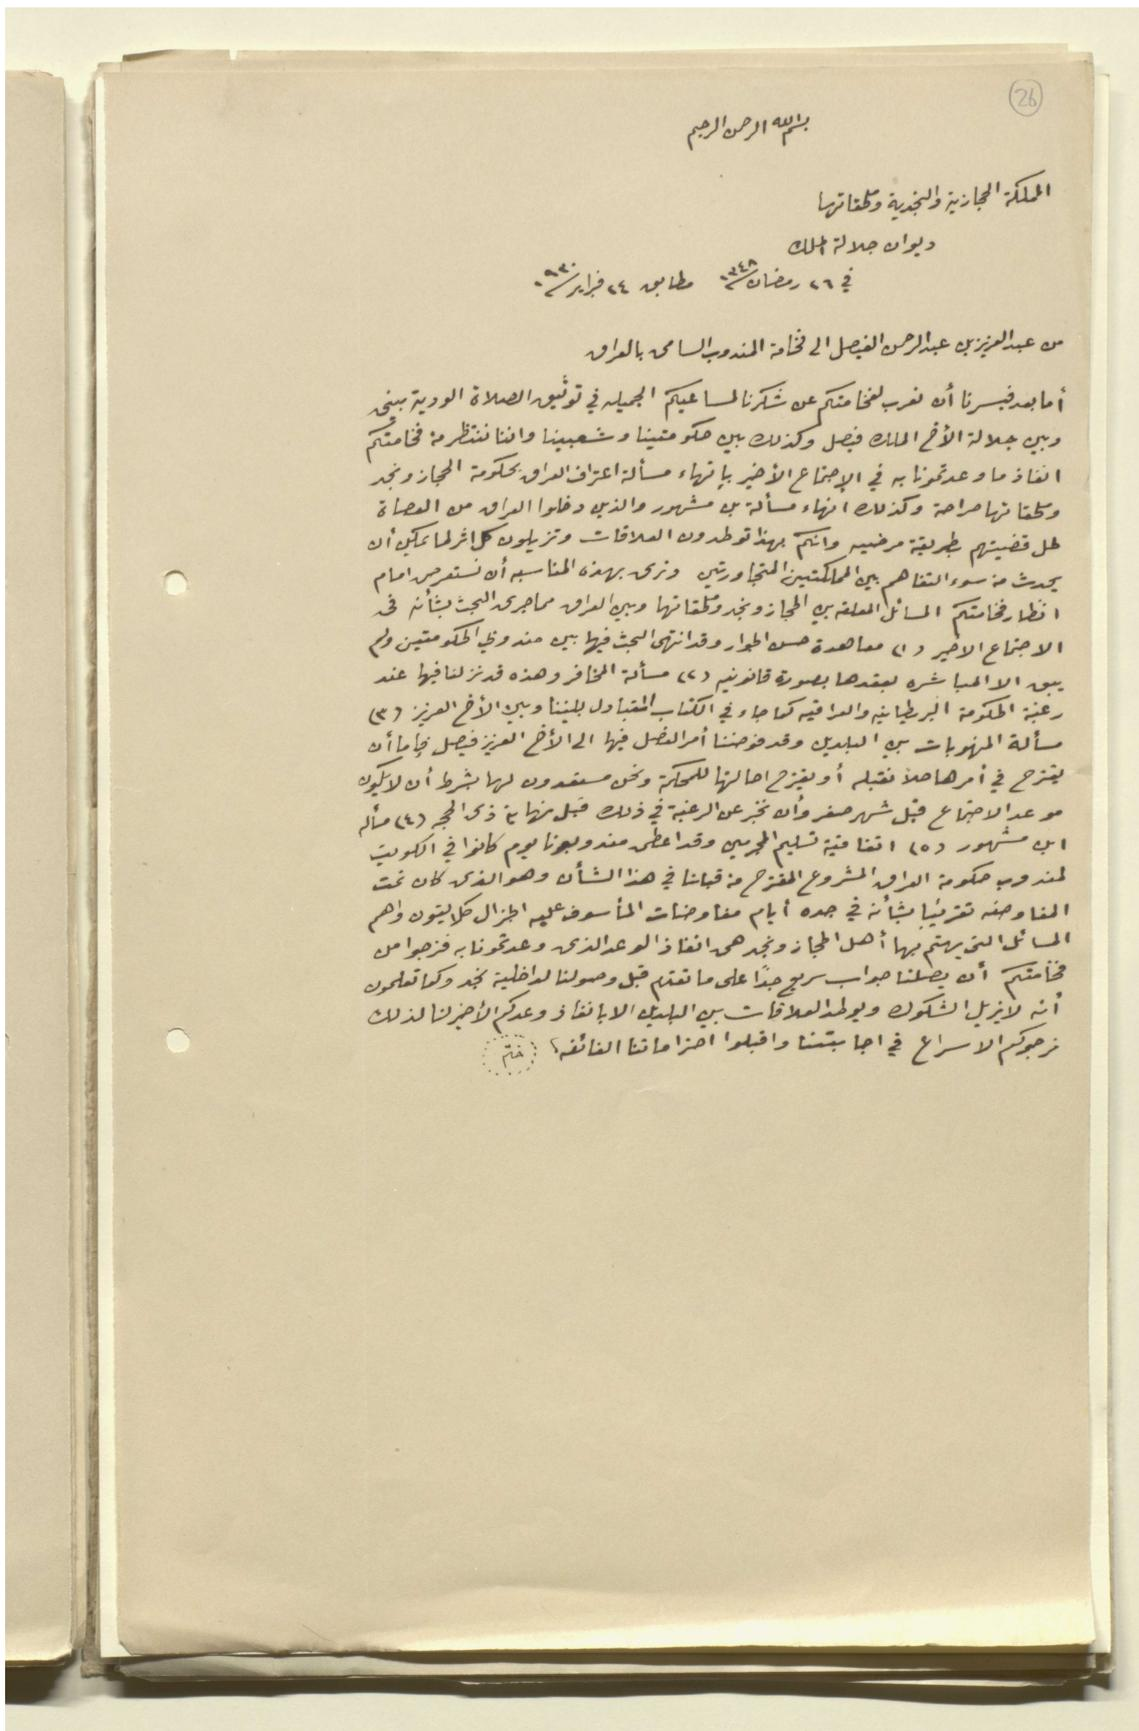 26
بسم الله الرحمن الرحيم
المملكة الحجازية والنجدية وملحقاتها
ديوان جلالة الملك
في ٢٦ رمضان سنة ١٣٤٨ مطابق ٢٤ فبراير سنة ٩٣٠
من عبد العزيز بن عبد الرحمن الفيصل الى فخامة المندوب السامى بالعراق
أما بعد فيسرنا أن نعرب لفخامتكم عن شكرنا لمساعيكم الجميله في توثيق الصلاة الودية بينى
وبين جلالة الأخ الملك فيصل وكذلك بين حكومتينا وشعبينا واننا ننتظر من فخامتكم
انفاذ ما وعدتمونا به في الإجتماع الأخير بإنهاء مسألة اعتراف العراق بحكومة الحجاز ونجد
وملحقاتها صراحة وكذلك انهاء مسألة بن مشهور والذين دخلوا العراق من العصاة
لحل قضيتهم بطريقة مرضيه وانكم بهذا توطدون العلاقات وتزيلون كل اثر لما يمكن أن
يحدث من سوء التفاهم بين المملكتين المتجاورتين ونرى بهذه المناسبه أن نستعرض امام
انظار فخامتكم المسائل المعلقه بين الحجاز ونجد وملحقاتها وبين العراق مما جرى البحث بشأنه فى
الاجتماع الاخير (١) معاهدة حسن الجوار وقد انتهى البحث فيها بين مندوبي الحكومتين ولم
يبق الا المباشره لعقدها بصورة قانونيه (٢) مسألة المخافر وهذه قد نزلنا فيها عند
رغبة الحكومة البريطانيه والعراقيه كما جاء في الكتاب المتبادل بيننا وبين الأخ العزيز (٣)
مسألة المنهوبات بين البلدين وقد فوضنا أمر الفصل فيها الى الأخ العزيز فيصل فإما أن
يقترح في أمرها حلاً نقبله أو يقترح احالتها للمحكمة ونحن مستعدون لها بشرط أن لا يكون
موعد الاجتماع قبل شهر صفر وأن نخبر عن الرغبة في ذلك قبل نهاية ذى الحجه (٤) مسألة
ابن مشهور (٥) اتفاقية تسليم المجرمين وقد اعطى مندوبونا يوم كانوا في الكويت
لمندوب حكومة العراق المشروع المقترح من قبلنا في هذا الشأن وهو الذى كان تحت
المفاوضه تقريبًا بشأنه في جده أيام مفاوضات المأسوف عليه الجنرال كلايتون واهم
المسائل التى يهتم بها أهل الحجاز ونجد هى انفاذ الوعد الذى وعدتمونا به فنرجوا من
فخامتكم أن يصلنا جواب سريع جدًا على ما تقدم قبل وصولنا لداخلية نجد وكما تعلمون
أنه لا يزيل الشكوك ويوطد العلاقات بين البلدين الا بإنفاذ وعدكم الأخير لنا لذلك
نرجوكم الاسراع في اجابتنا واقبلوا احتراماتنا الفائقه
ختم